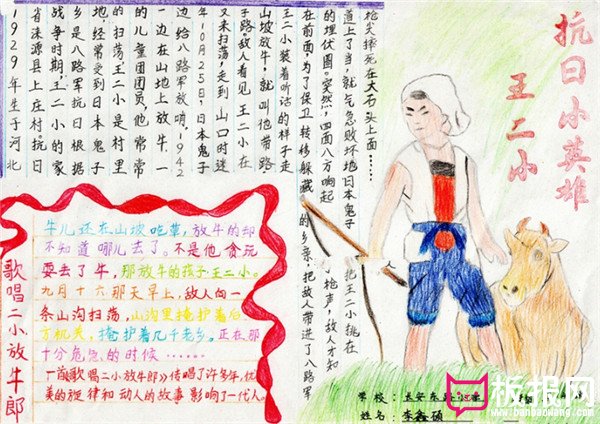 抗日小英雄
王二小
1929年生于河北
省涞源县上庄村。抗日
战争时期,王二小的家
乡是八路军抗日根据
地,经常受到日本鬼子
的扫荡,王二小是村里
的儿童团团员,他常常
一边在山地上放牛,一
边给八路军放哨。1942
年10月25日,日本鬼子
又来扫荡,走到山口时迷
了路,敌人看见王二小在
山坡放牛,就叫他带路。
王二小装着听话的样子走
在前面,为了保卫转移躲藏的乡亲,把敌人带进了八路军
的埋伏圈。突然,四面八方响起了枪声,敌人才知
道上了当,就气急败坏地日本鬼子把王二小挑在
枪尖摔死在大石头上面……
歌唱二小放牛郎
牛儿还在山坡吃草,放牛的却
不知道哪儿去了。不是他贪玩
耍丢了牛,那放牛的孩子王二小。
九月十六那天早上,敌人向一
条山沟扫荡,山沟里掩护着后
方机关,掩护着几千老乡。正在那
十分危急的时候……
一首《歌唱二小放牛郎》传唱了许多年,优
美的旋律和动人的故事影响了一代人。
学校:长安东路
姓名:李鑫硕
板报网
www.banbaowang.com